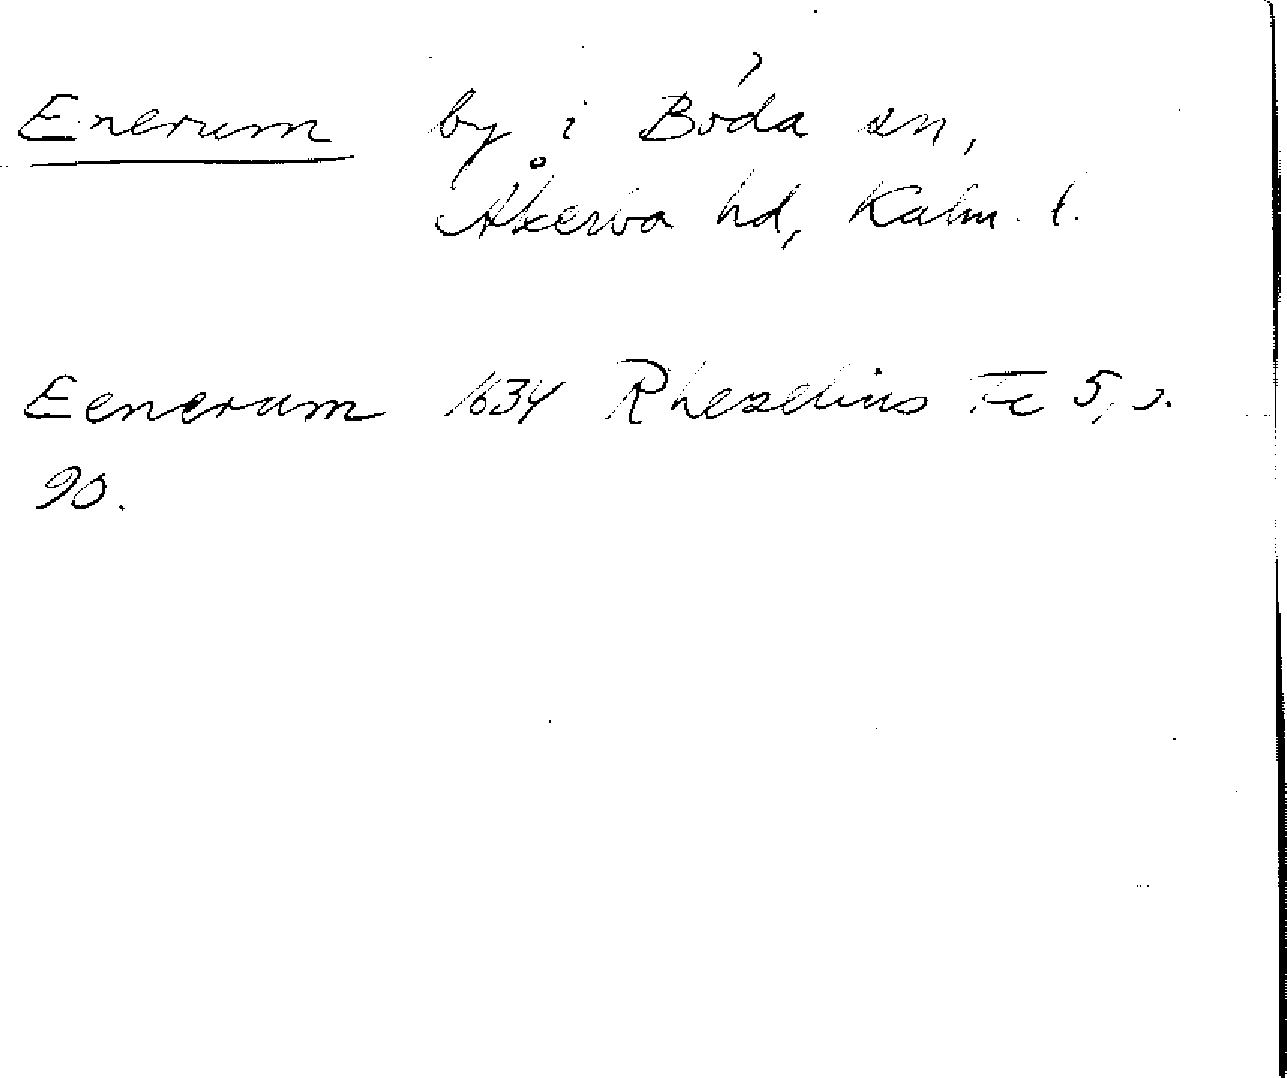 Enerum by i Böda sn,
Åkerbo hd, Kalm. l.
Eenerum 1634 Rhezelius Fc 5, s.
90.